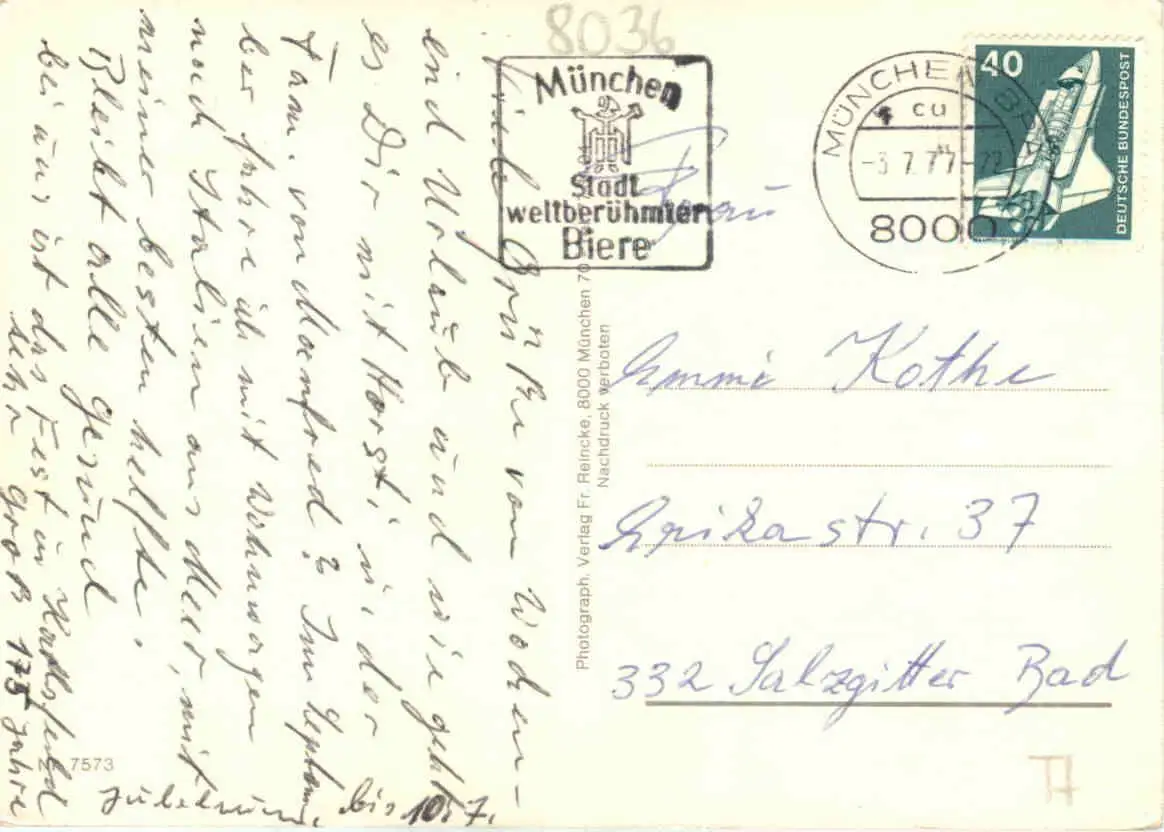 8036
München
Stadt
weltberühmter
Biere
MÜNCHEN BPA
cu
-3.7.77-22
8000
40
DEUTSCHE BUNDESPOST
Frau
Emmi Kothe
Erikastr. 37
332 Salzgitter Bad
Photograph. Verlag Fr. Reincke, 8000 München 70
Nachdruck verboten
Liebe Grüße vom Wochen-
end Urlaub und wie geht
es Dir mit Horsti u. der
Fam. von Manfred? Im Septem
ber fahre ich mit Wohnwagen
nach Italien ans Meer, mit
meiner besten helfte.
Bleibt alle gesund
bei uns ist das Fest in
sehr groß 175 Jahre
Jubeleum, bis 10.7.
7573